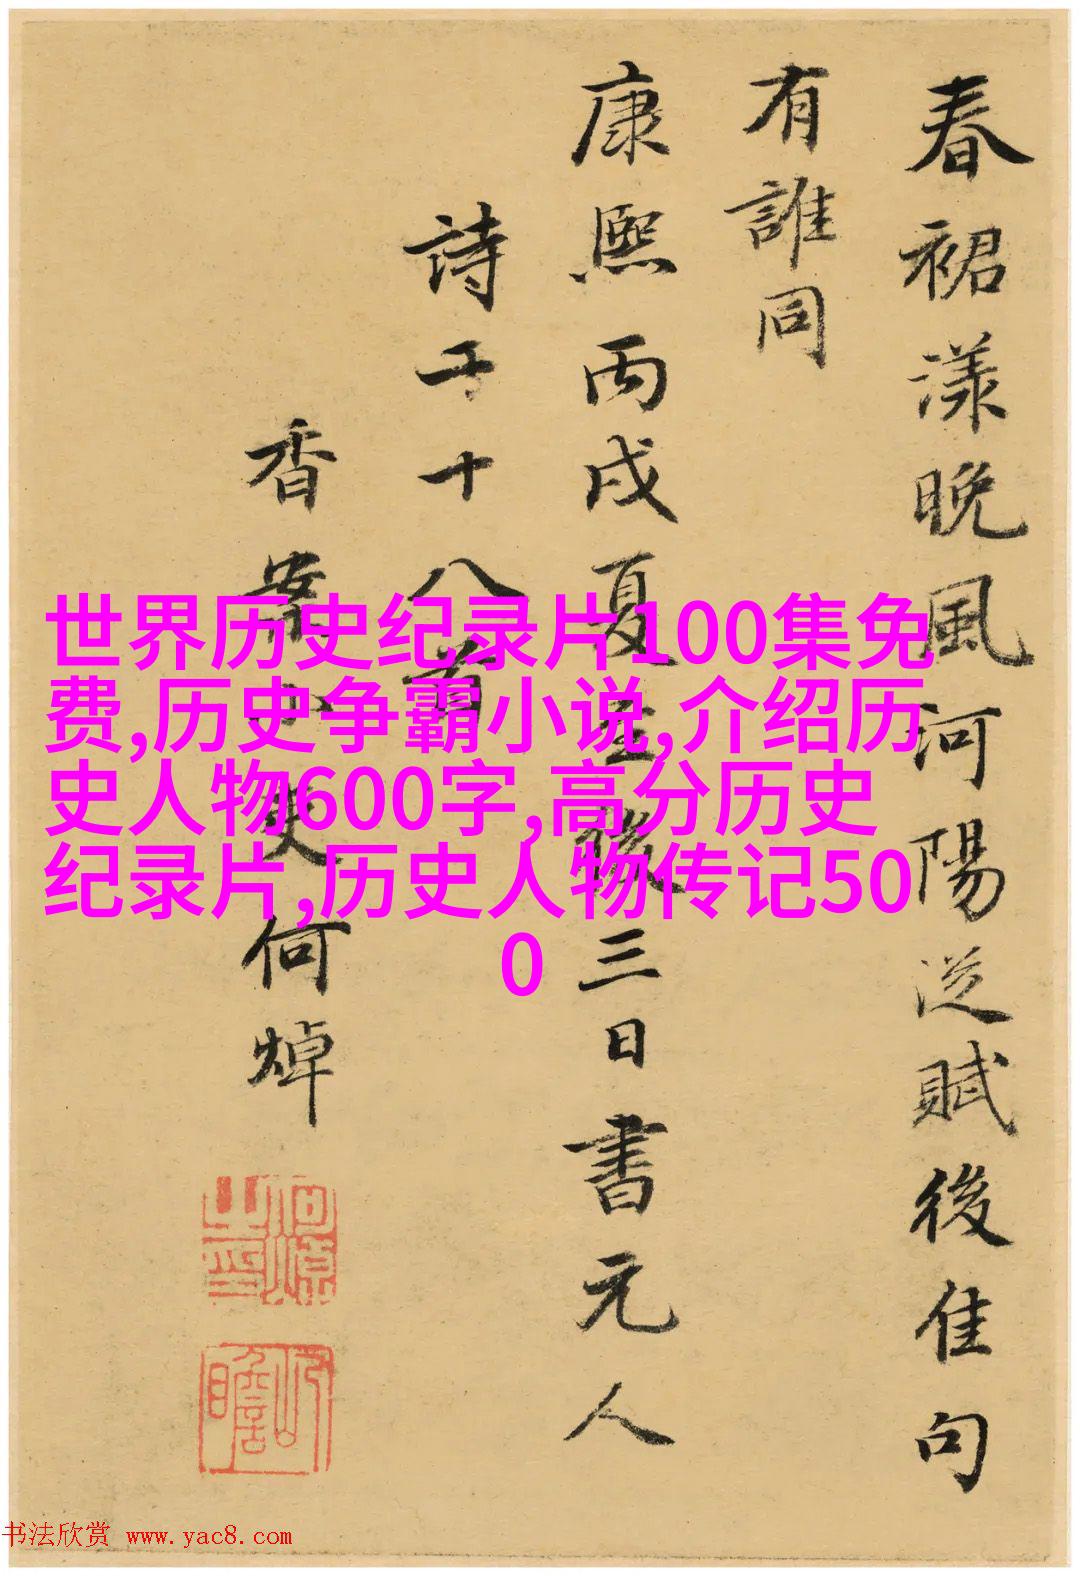 春裙漾晚風河陽從賦後佳句
有誰同
康熙丙戌夏至後三日書元人
詩于十八首
香案小吏何焯
世界历史纪录片100集免
费,历史争霸小说,介绍历
史人物600字,高分历史
纪录片,历史人物传记50
0
书法欣赏 www.yac8.com